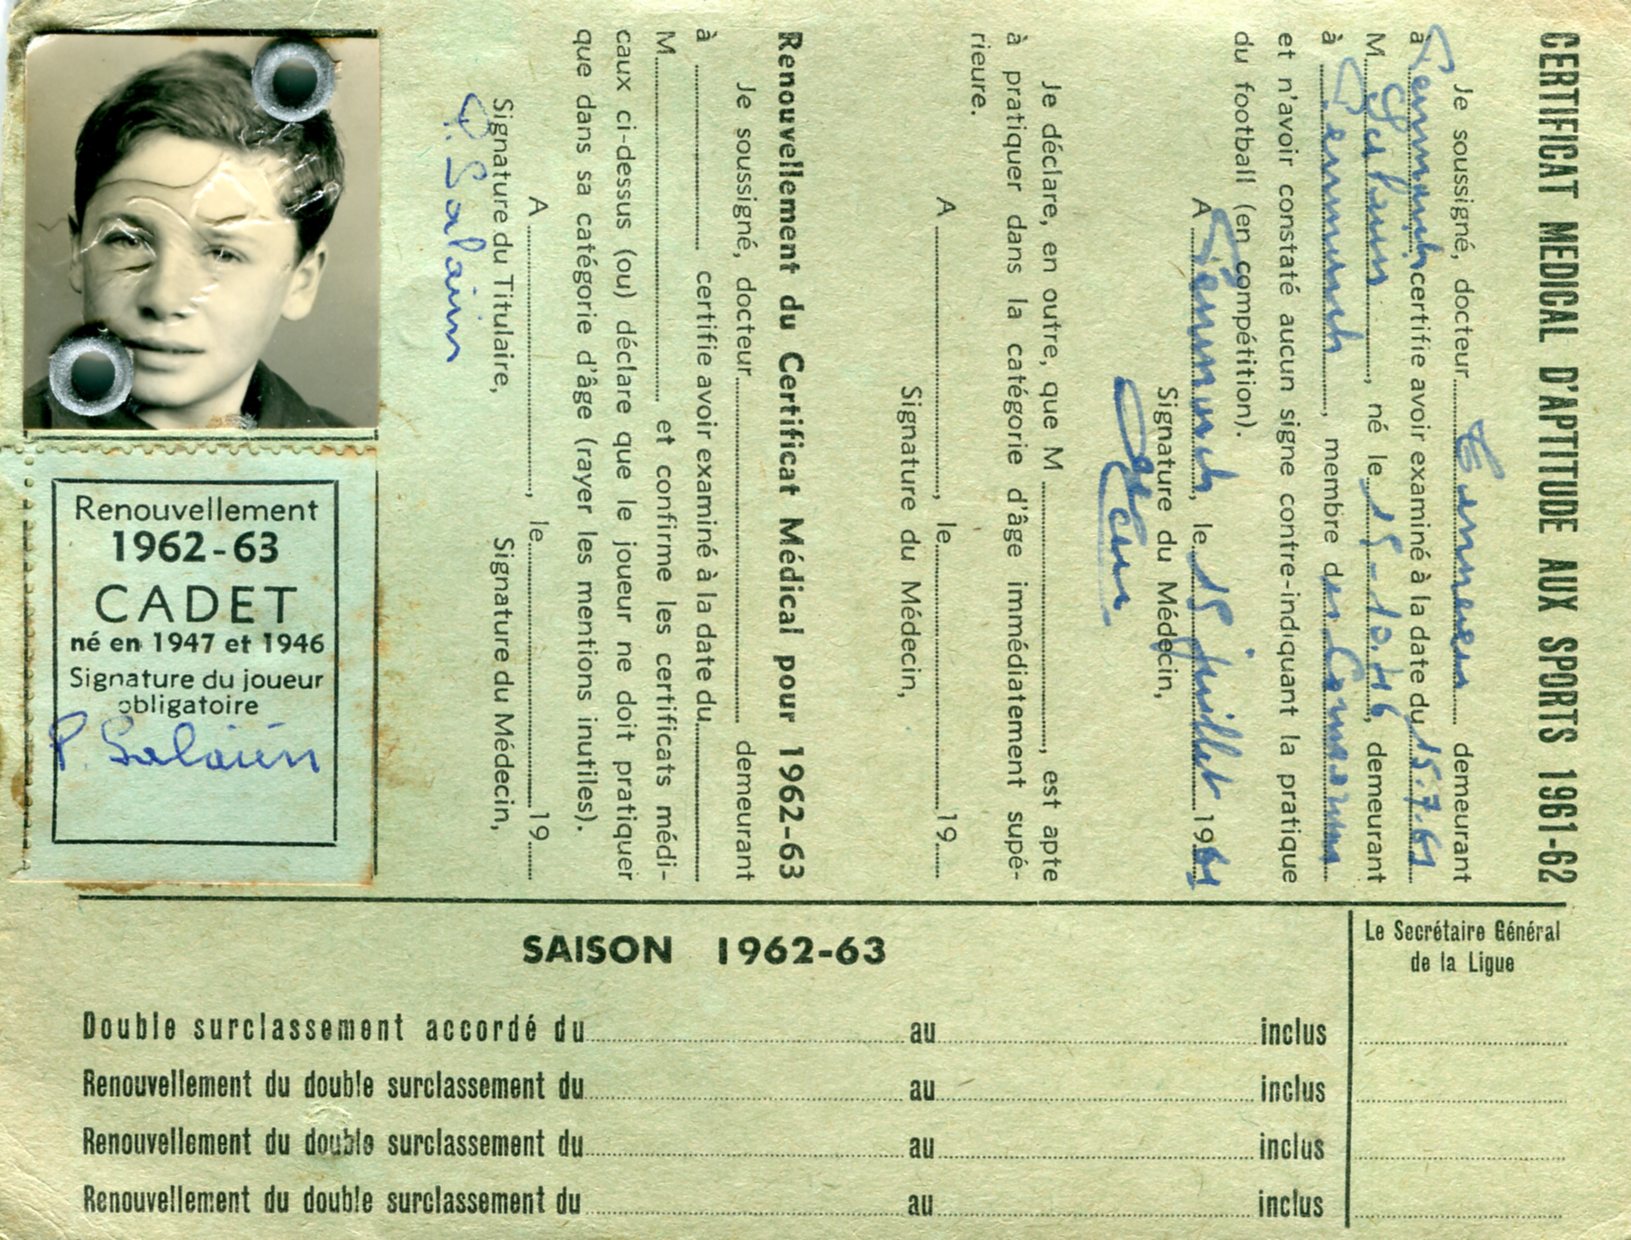 CERTIFICAT MEDICAL D'APTITUDE AUX SPORTS 1961-62
Je soussigné, docteur demeurant
à certifie avoir examiné à la date du 15.7.61
M , né le 15-10.46, demeurant
à , membre d
et n'avoir constaté aucun signe contre-indiquant la pratique
du football (en compétition).
A , le 15 juillet 1961
Signature du Médecin,
Je déclare, en outre, que M , est apte
à pratiquer dans la catégorie d'âge immédiatement supé-
rieure.
A , le 19
Signature du Médecin,
Renouvellement du Certificat Médical pour 1962-63
Je soussigné, docteur demeurant
à certifie avoir examiné à la date du
M et confirme les certificats médi-
caux ci-dessus (ou) déclare que le joueur ne doit pratiquer
que dans sa catégorie d'âge (rayer les mentions inutiles).
A , le 19
Signature du Titulaire, Signature du Médecin,
P. Salaün
Renouvellement
1962-63
CADET
né en 1947 et 1946
Signature du joueur
obligatoire
P. Salaün
SAISON 1962-63
Le Secrétaire Général
de la Ligue
Double surclassement accordé du au inclus
Renouvellement du double surclassement du au inclus
Renouvellement du double surclassement du au inclus
Renouvellement du double surclassement du au inclus